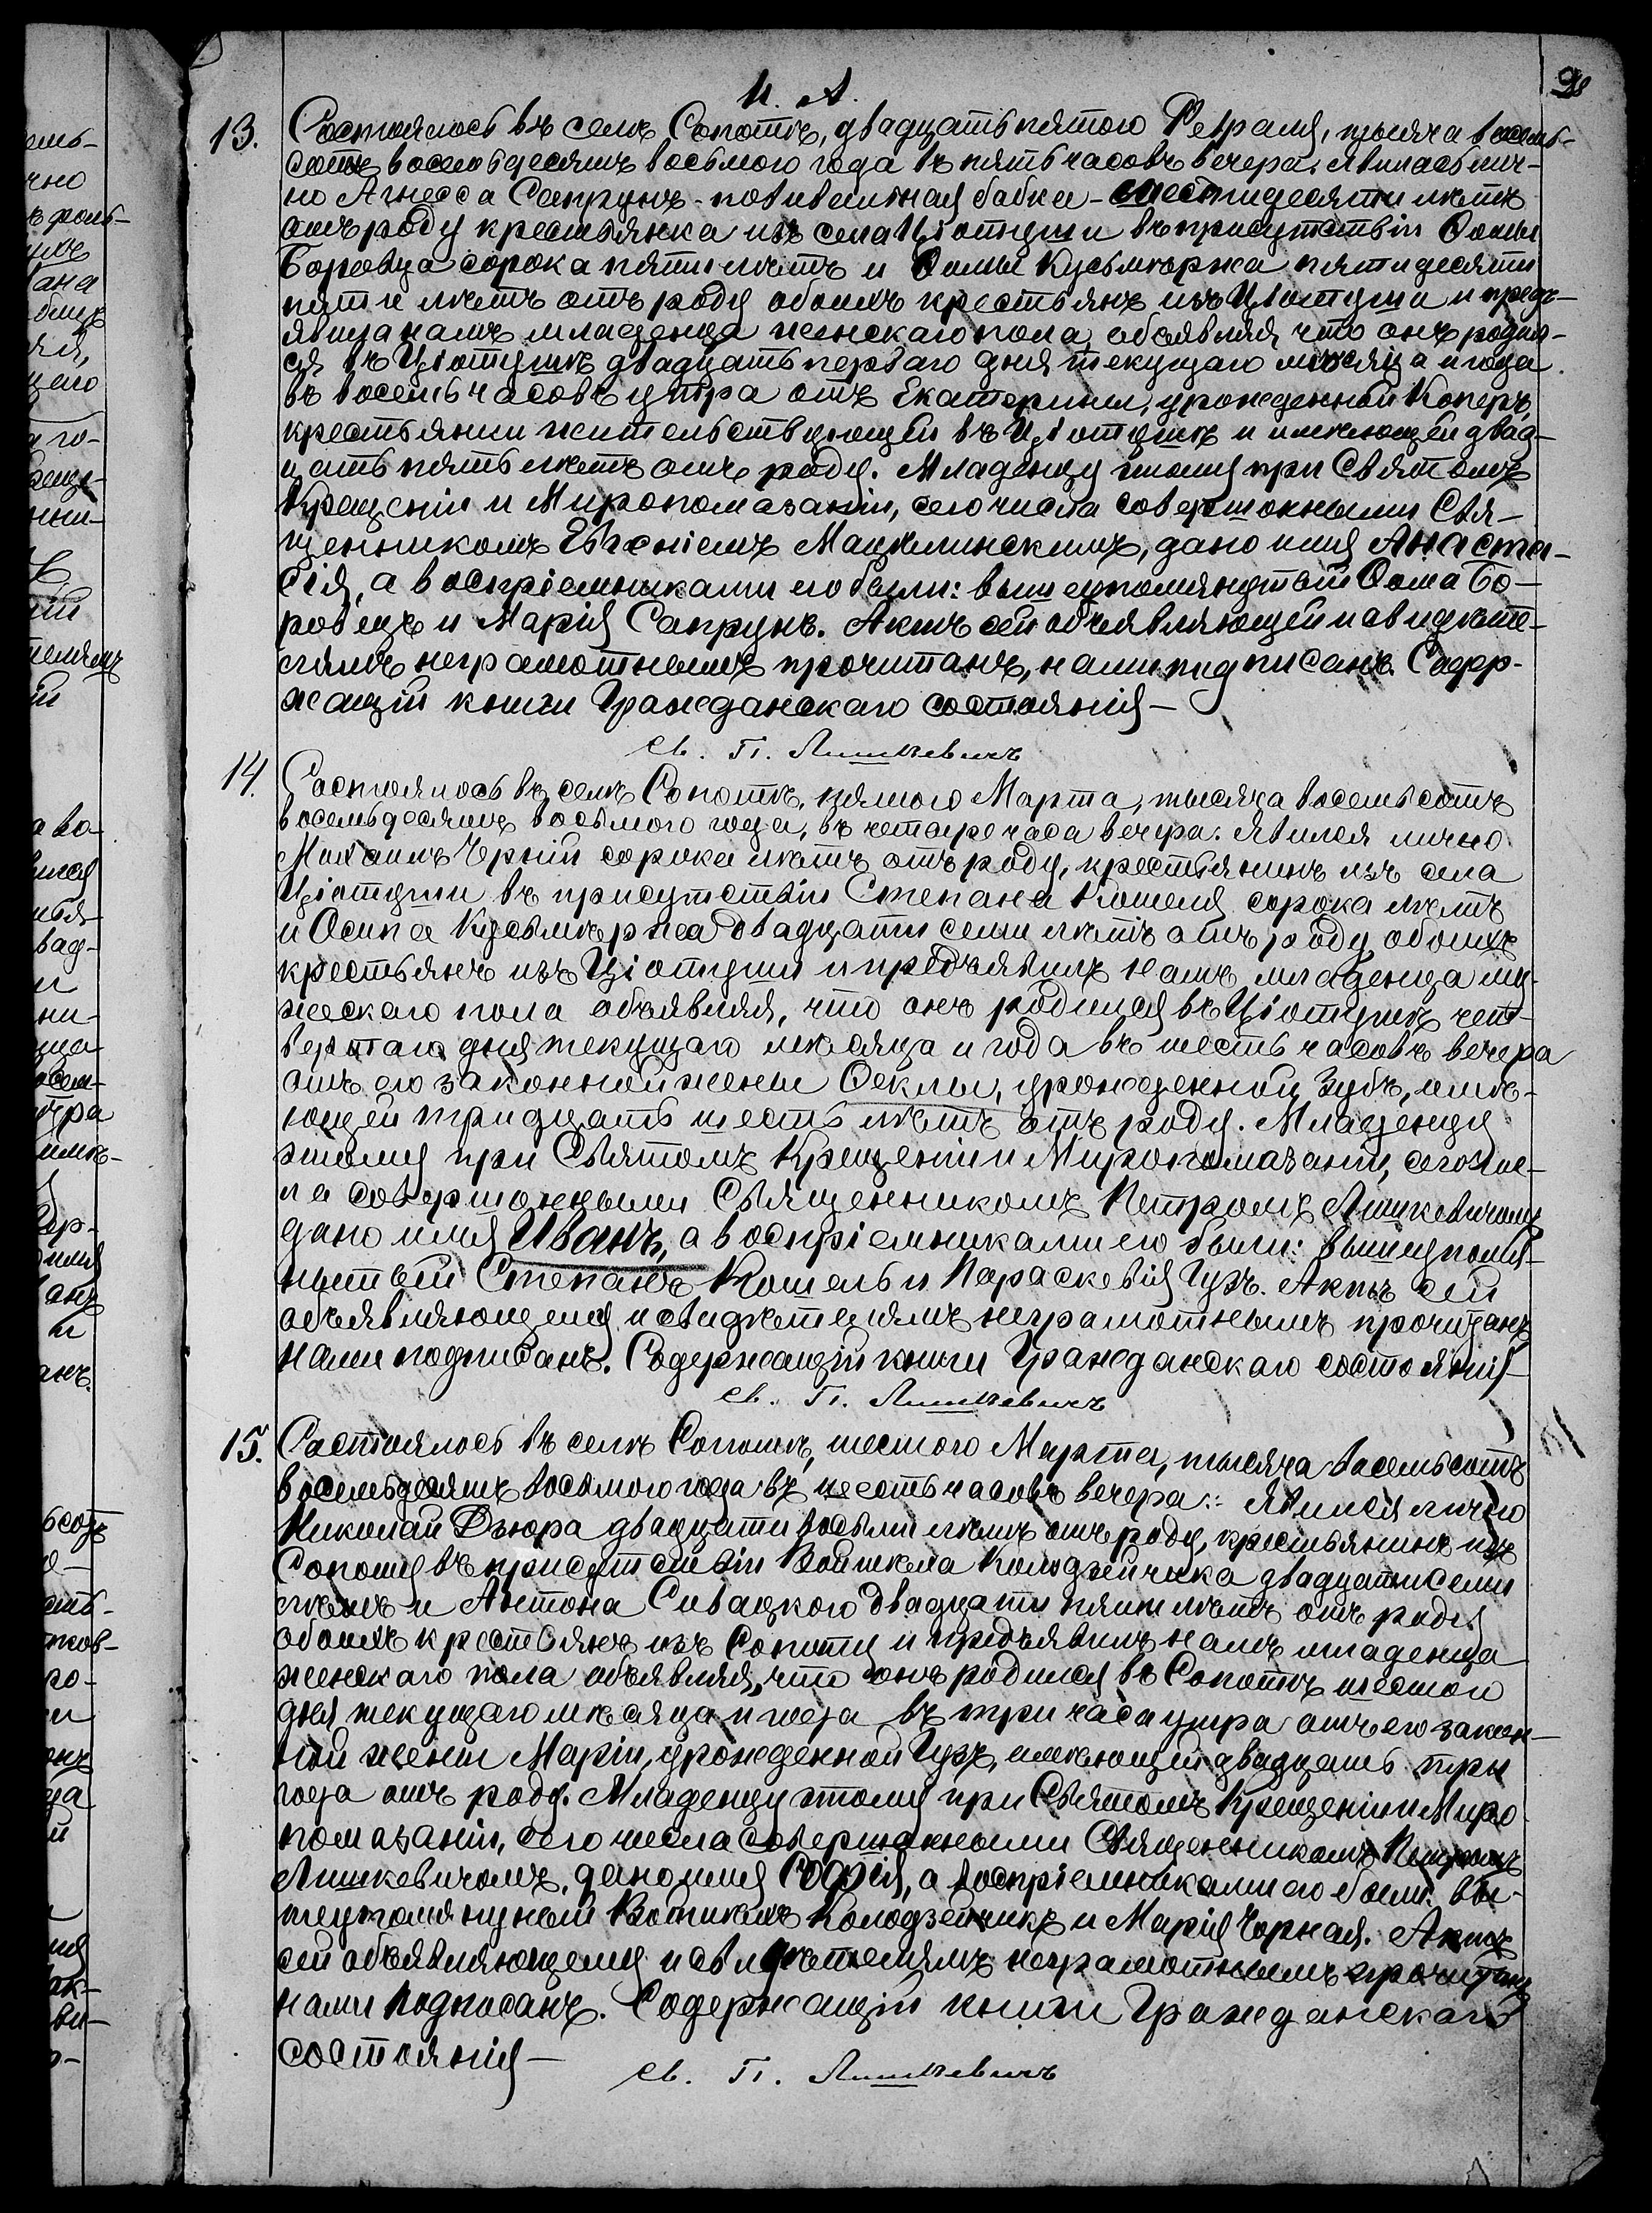 И. А.
13. Состоялось въ селѣ Сопотѣ, двадцать пятого Февраля, тысяча восемь-
сотъ восемьдесятъ восьмого года въ пять часовъ вечера. Явилась лич-
но Агнесса Сапрунъ - повивальная бабка - шестидесяти лѣтъ
отъ роду крестьянка изъ села Ціотуши въ присутствіи Ѳомы
Боровца сорока пяти лѣтъ и Ѳомы Кусьмѣржа пятидесяти
пяти лѣтъ отъ роду обоихъ крестьянъ изъ Ціотуши и предъ-
явила намъ младенца женскаго пола, объявляя что онъ родил-
ся въ Ціотушѣ двадцать перваго дня текущаго мѣсяца и года
въ восемь часовъ утра отъ Екатерины, урожденной Коперъ,
крестьянки жительствующей въ Ціотушѣ и имѣющей двад-
цать пять лѣтъ отъ роду. Младенцу этому при Святомъ
Крещеніи и Миропомазаніи, сего числа совершонными Свя-
щенникомъ Евгеніемъ Мацѣлинскимъ, дано имя Анаста-
сія, а воспріемниками его были: вышеупомянутый Ѳома Бо-
ровецъ и Марія Сапрунъ. Актъ сей объявляющей и свидѣте-
лямъ неграмотнымъ прочитанъ, нами подписанъ. Содер-
жащій книги Гражданскаго состоянія —
Св. П. Лишкевичъ
14. Состоялось въ селѣ Сопотѣ, пятого Марта, тысяча восемьсотъ
восемьдесятъ восьмого года, въ четыре часа вечера. Явился лично
Михаилъ Черній сорока лѣтъ отъ роду, крестьянинъ изъ села
Ціотуши въ присутствіи Степана Кошеля сорока лѣтъ
и Осипа Кусьмѣржа двадцати семи лѣтъ отъ роду обоихъ
крестьянъ изъ Ціотуши и предъявилъ намъ младенца му-
жескаго пола объявляя, что онъ родился въ Ціотушѣ чет-
вертаго дня текущаго мѣсяца и года въ шесть часовъ вечера
отъ его законной жены Ѳеклы, урожденной Зубъ, имѣ-
ющей тридцать шесть лѣтъ отъ роду. Младенцу
этому при Святомъ Крещеніи и Миропомазаніи, сего чис-
ла совершонными Священникомъ Петромъ Лишкевичомъ
дано имя Иванъ, а воспріемниками его были: вышеупомя-
нутый Степанъ Кошель и Параскевія Гузъ. Актъ сей
объявляющему и свидѣтелямъ неграмотнымъ прочитанъ
нами подписанъ. Содержащій книги Гражданскаго состоянія —
Св. П. Лишкевичъ
15. Состоялось въ селѣ Сопотѣ, шестого Марта, тысяча восемьсотъ
восемьдесятъ восьмого года въ шесть часовъ вечера. Явился лично
Николай Дзюра двадцати восьми лѣтъ отъ роду, крестьянинъ изъ
Сопоту въ присутствіи Войтѣха Колодзейчика двадцати семи
лѣтъ и Антона Сивацкого двадцати пяти лѣтъ отъ роду
обоихъ крестьянъ изъ Сопоту и предъявилъ намъ младенца
женскаго пола объявляя, что онъ родился въ Сопотѣ шестого
дня текущаго мѣсяца и года въ три часа утра отъ его закон-
ной жены Маріи, урожденной Гузъ, имѣющей двадцать три
года отъ роду. Младенцу этому при Святомъ Крещеніи и Миро-
помазаніи, сего числа совершонными Священникомъ Петромъ
Лишкевичомъ, дано имя Софія, а воспріемниками его были: вы-
шеупомянутый Колодзейчикъ и Марія Чорная. Актъ
сей объявляющему и свидѣтелямъ неграмотнымъ прочитанъ
нами подписанъ. Содержащій книги Гражданскаго
состоянія —
Св. П. Лишкевичъ